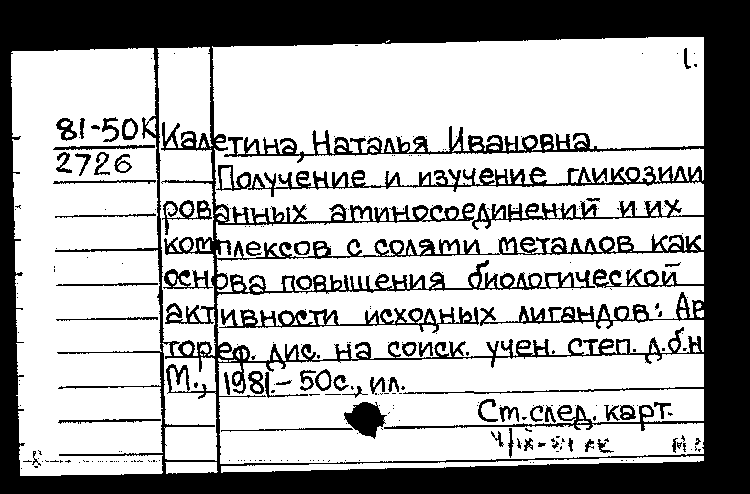 1.
81-50К
2726
Калетина, Наталья Ивановна.
Получение и изучение гликозили
рованных аминосоединений и их
комплексов с солями металлов как
основа повышения биологической
активности исходных лигандов: Ав
тореф. дис. на соиск. учен. степ. д.б.н
М., 1981.- 50с., ил.
Ст.след. карт.